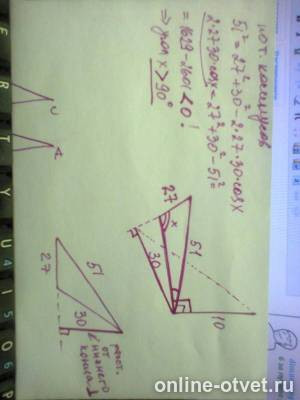 по т. косинусов
51² = 27² + 30² - 2·27·30·cosx
2·27·30·cosx = 27² + 30² - 51² =
= 1629 - 2601 < 0 !
⇒ угол x > 90°
27
x
51
30
10
51
27
30
расст.
от
нижнего
конца
C
A
R T Y U
4 1 5 0 6 P
online-otvet.ru